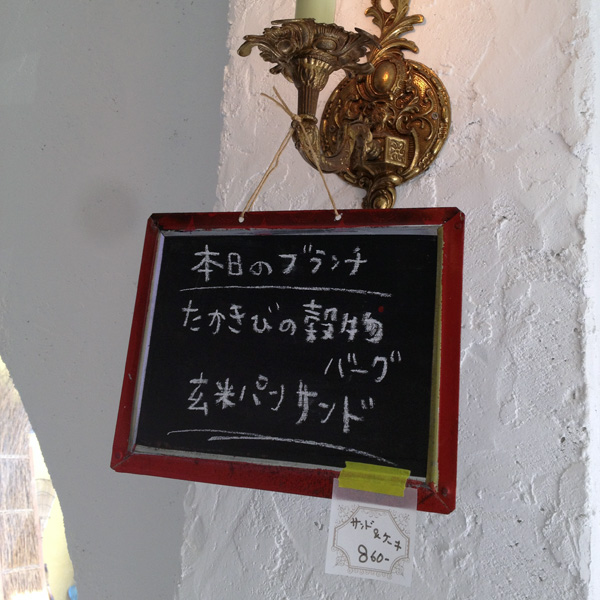 本日のブランチ
たかきびの穀物
バーグ
玄米パンサンド
サンド&ケーキ
860-